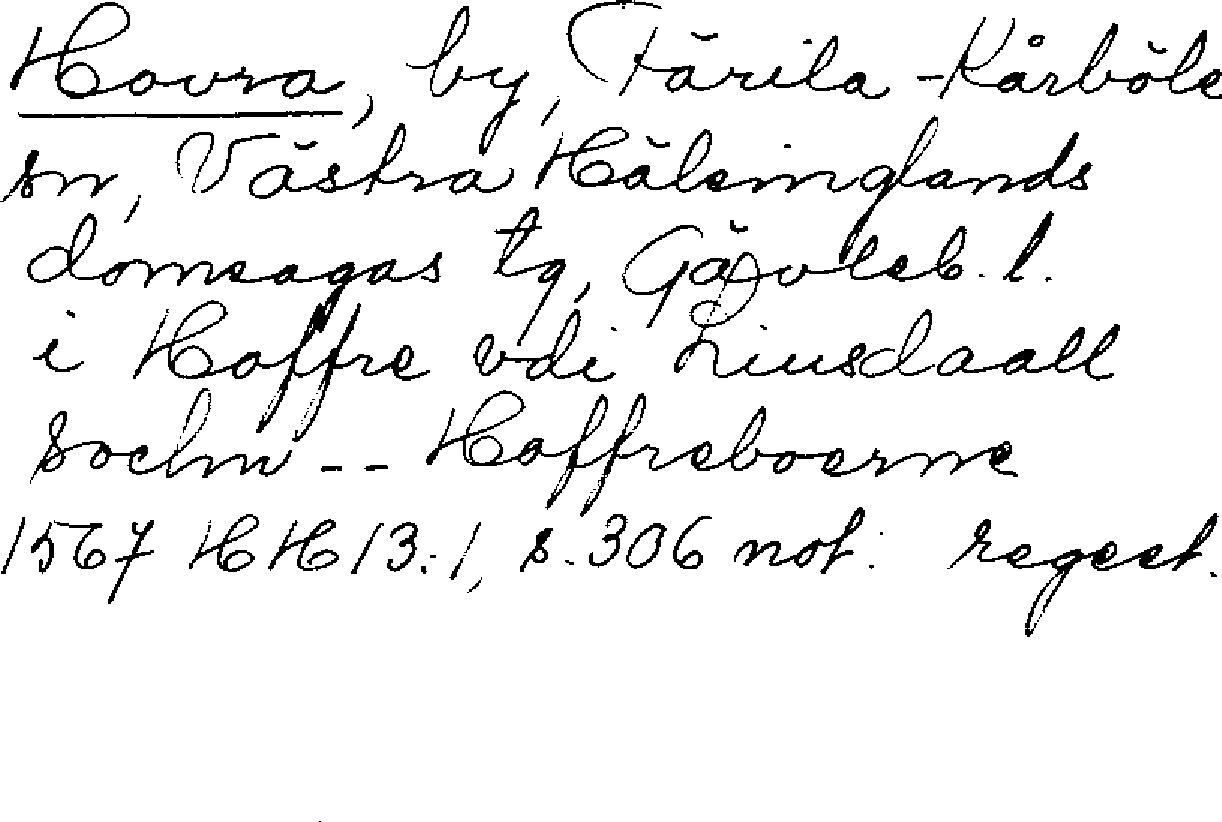 Hovra, by, Färila-Kårböle
sn, Västra Hälsinglands
domsagas tg, Gävleb. l.
i Hoffre vdi Liusdaall
sochn -- Hoffreboerne
1567 HH 13:1, s. 306 not. regest.